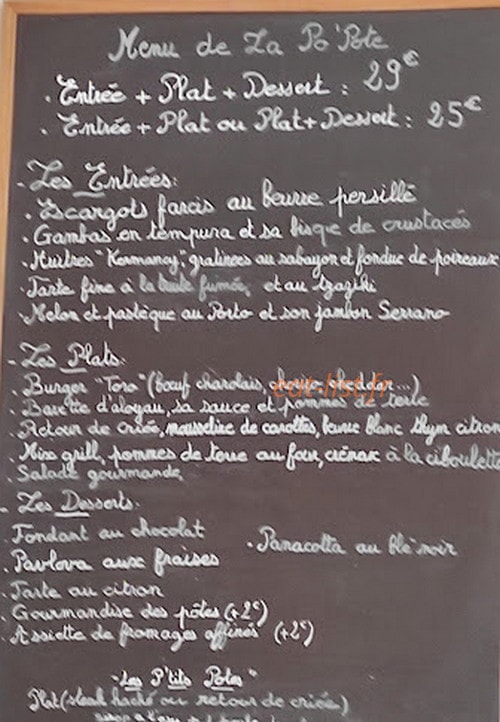 Menu de La Po'Pote
. Entrée + Plat + Dessert : 29€
. Entrée + Plat ou Plat + Dessert : 25€
- Les Entrées:
. Escargots farcis au beurre persillé
. Gambas en tempura et sa bisque de crustacés
. Huîtres "Kermancy", gratinées au sabayon et fondue de poireaux
. Tarte fine à la truite fumée, et au tzaziki
. Melon et pastèque au Porto et son jambon Serrano
- Les Plats:
. Burger "Toro" (bœuf charolais, chorizo, cheddar...)
. Bavette d'aloyau, sa sauce et pommes de terre
. Retour de criée, mousseline de carottes, beurre blanc thym citron
. Mix grill, pommes de terre au four, crémax à la ciboulette
. Salade gourmande,
- Les Desserts:
. Fondant au chocolat
. Panacotta au blé noir
. Pavlova aux fraises
. Tarte au citron
. Gourmandise des pôtes (+2€)
. Assiette de fromages affinés (+2€)
"Les P'tits Potes"
Plat (steak haché ou retour de criée)
eat-list.fr